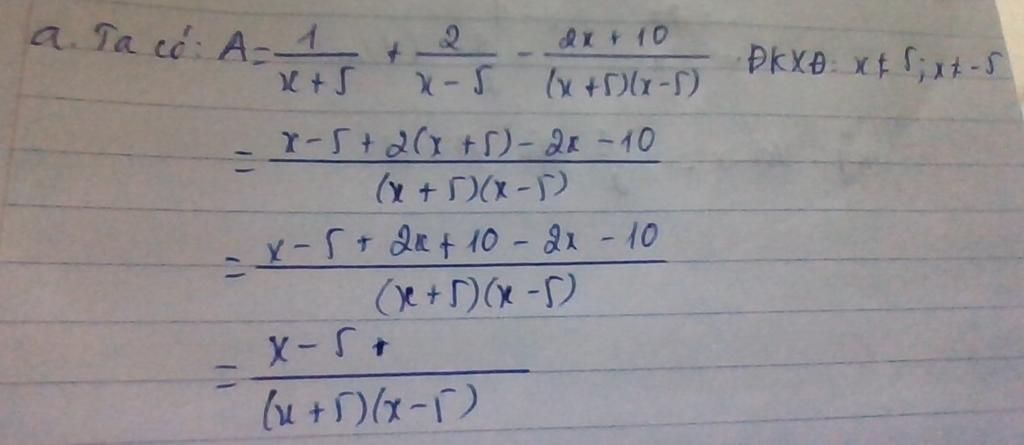 a. Ta có: A = 1/(x+5) + 2/(x-5) - (2x+10)/((x+5)(x-5)) ĐKXĐ: x ≠ 5; x ≠ -5
= (x-5+2(x+5)-2x-10)/((x+5)(x-5))
= (x-5+2x+10-2x-10)/((x+5)(x-5))
= (x-5+)/((x+5)(x-5))